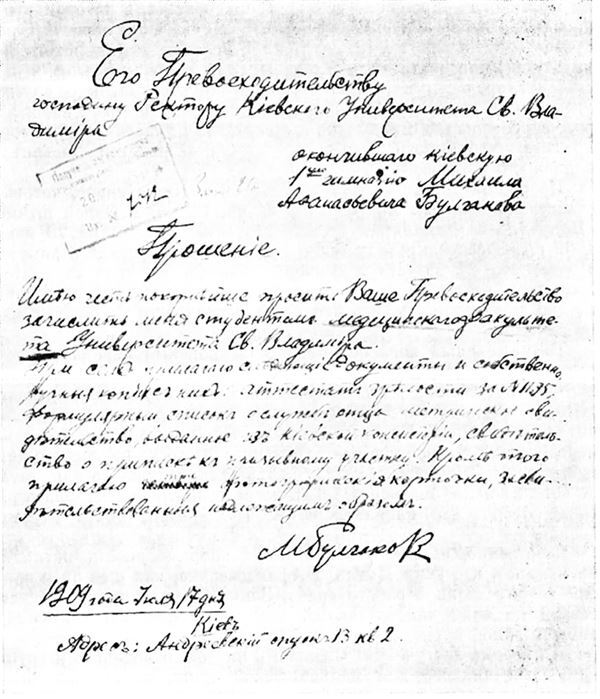 Его Превосходительству
господину Ректору Кіевского Университета Св. Вла-
диміра
окончившаго Кіевскую
1ую гимназію Михаила
Аѳанасьевича Булгакова
Прошеніе.
Имѣю честь покорнѣйше просить Ваше Превосходительство
зачислить меня студентомъ медицинскаго факульте-
та Университета Св. Владиміра.
При семъ прилагаю слѣдующіе документы и собственно-
ручныя копіи съ нихъ: аттестатъ зрѣлости за №
формулярный списокъ о службѣ отца, метрическое сви-
дѣтельство, выданное изъ Кіевской консисторіи, свидѣтель-
ство о припискѣ къ призывному участку. Кромѣ этого
прилагаю фотографическія карточки, засви-
дѣтельствованныя надлежащимъ образомъ.
МБулгаковъ
1909 года 17 дня
Кіевъ
Адресъ: Андреевскій спускъ 13 кв 2.